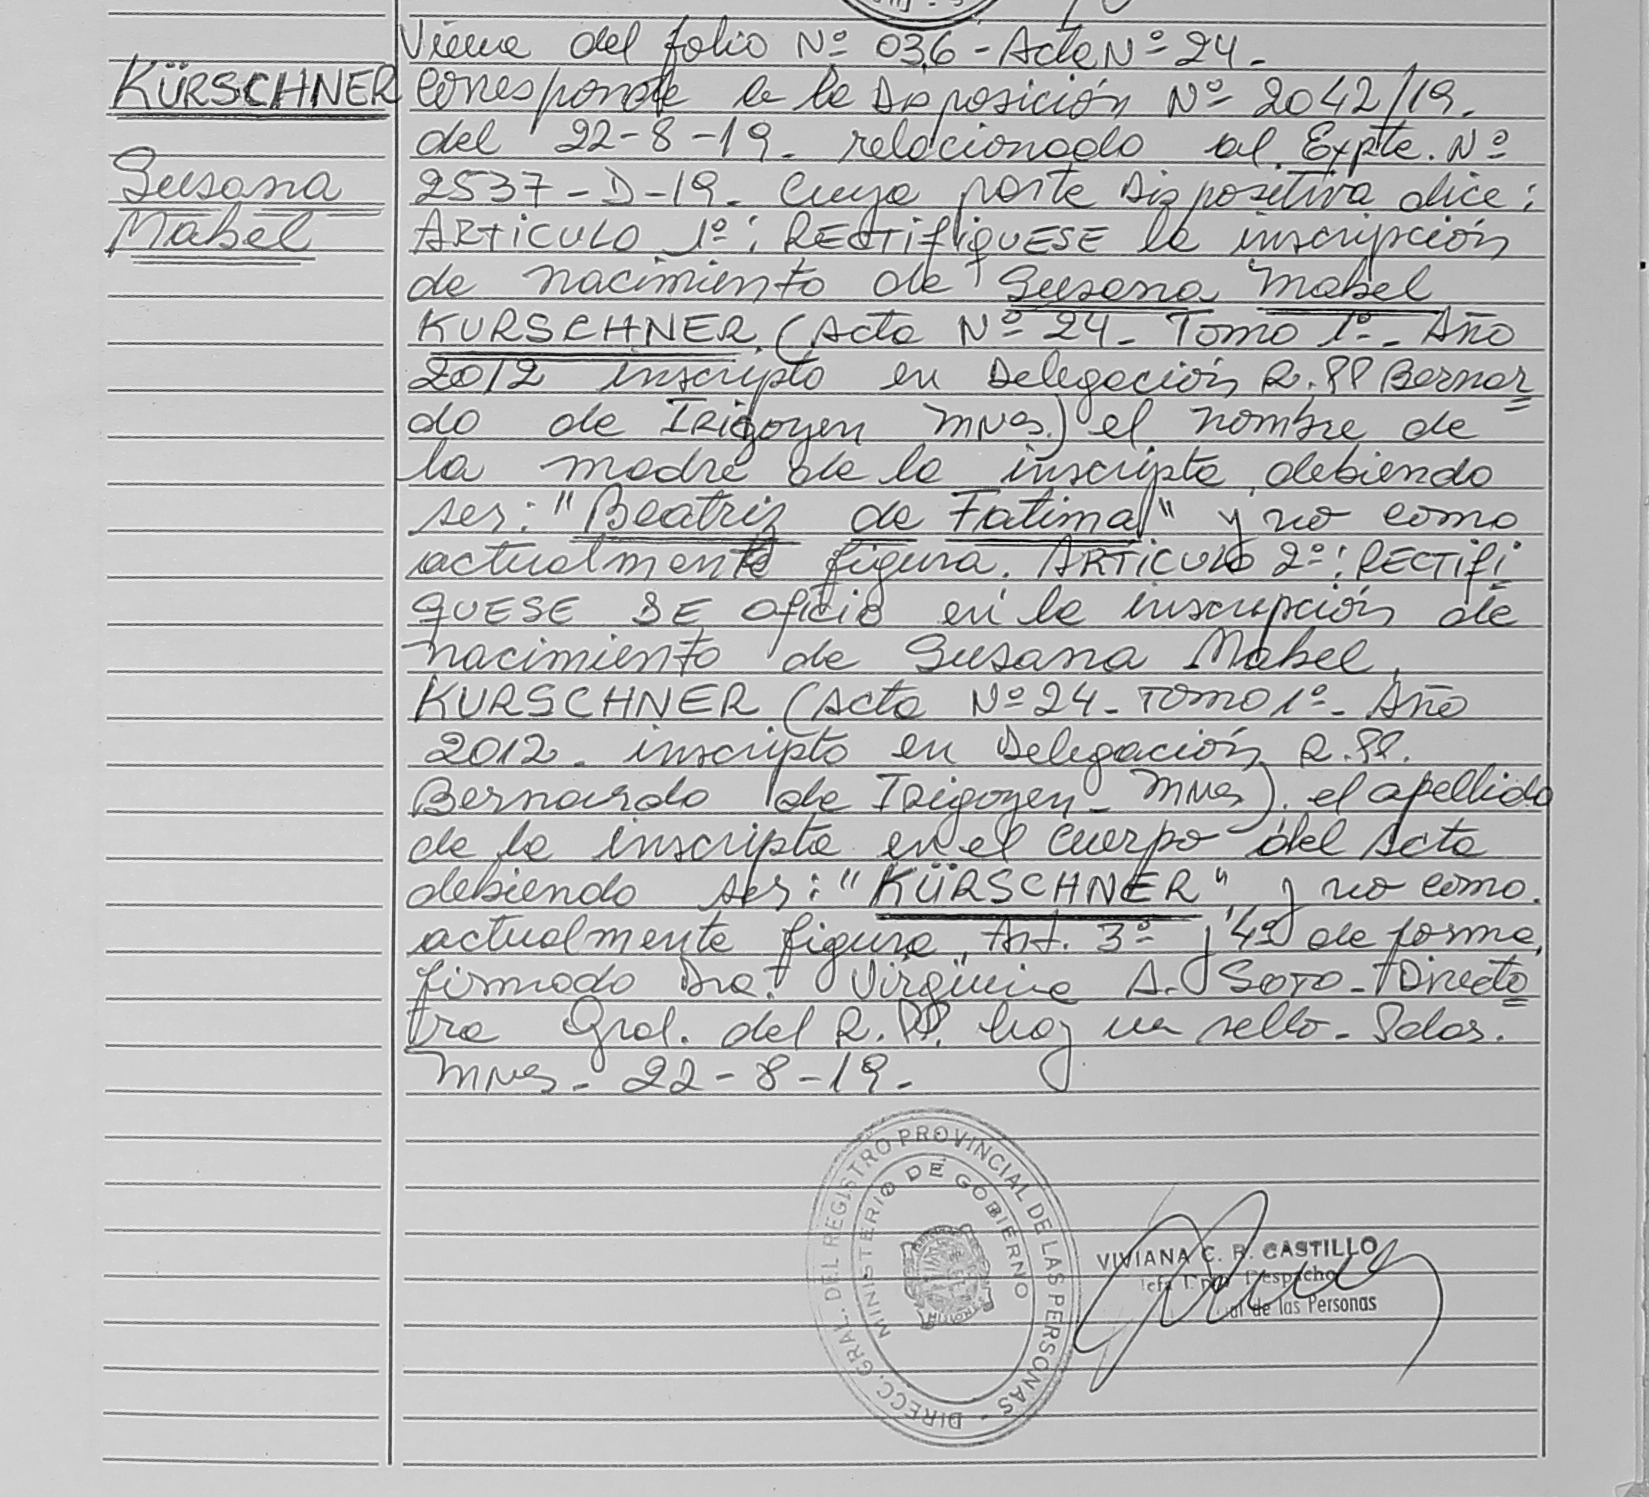 Viene del folio Nº 036 - Acta Nº 24.
KÜRSCHNER
Susana
Mabel
Corresponde a la Disposición Nº 2042/19.
del 22-8-19. relacionado al Expte. Nº
2537-D-19. Cuya parte Dispositiva dice:
ARTICULO 1º: RECTIFIQUESE la inscripción
de nacimiento de Susana Mabel
KURSCHNER (Acta Nº 24 - Tomo 1º - Año
2012 inscripto en Delegación R.PP Bernar
do de IRigoyen MNes.) el nombre de
la madre de la inscripta, debiendo
ser: "Beatriz de Fatima" y no como
actualmente figura. ARTICULO 2º: RECTIFI
QUESE DE Oficio en la inscripción de
nacimiento de Susana Mabel
KURSCHNER (Acta Nº 24 - TOMO 1º - Año
2012. inscripto en Delegación R.PP.
Bernardo de IRigoyen - MNes), el apellido
de la inscripta en el cuerpo del Acta
debiendo ser: "KÜRSCHNER" y no como.
actualmente figura. Art. 3º y 4º de forma,
firmado Dra. Virginia A. SOTO - Directo
ra Gral. del R.PP. hay un sello - Pdas.
MNes - 22-8-19.
DIRECC. GRAL. DEL REGISTRO PROVINCIAL DE LAS PERSONAS -
MINISTERIO DE GOBIERNO
VIVIANA C. R. CASTILLO
Jefa Dpto. Despacho
de las Personas